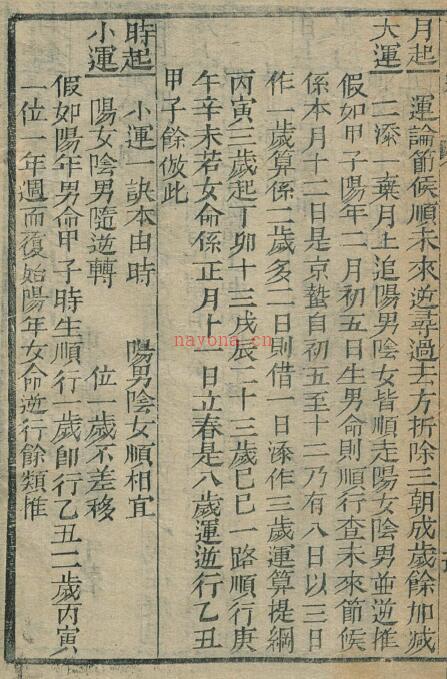 月起
大運
運論節候順未來逆尋過去方折除三朝成歲餘加減
二添一棄月上追陽男陰女皆順走陽女陰男並逆推
假如甲子陽年二月初五日生男命則順行查未來節候
係本月十二日是京蟄自初五至十二乃有八日以三日
作一歲算係二歲多二日則借一日添作三歲運算提綱
丙寅三歲起丁卯十三戊辰二十三歲巳巳一路順行庚
午辛未若女命係正月上一日立春是八歲運逆行乙丑
甲子餘倣此
時起
小運
小運一訣本由時　陽男陰女順相宜
陽女陰男隨逆轉　一位一歲不差移
假如陽年男命甲子時生順行一歲即行乙丑二歲丙寅
一位一年週而復始陽年女命逆行餘類推
nayona.cn